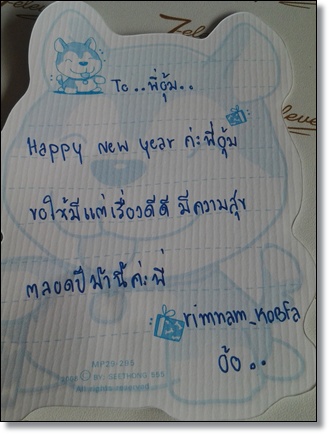 To..พี่อุ้ม..
Happy new year ค่ะพี่อุ้ม
ขอให้มีแต่เรื่องดีดี มีความสุข
ตลอดปีม้านี้ค่ะพี่
rimnam_kobfa
อ้อ..
MP29-255
All rights reserved